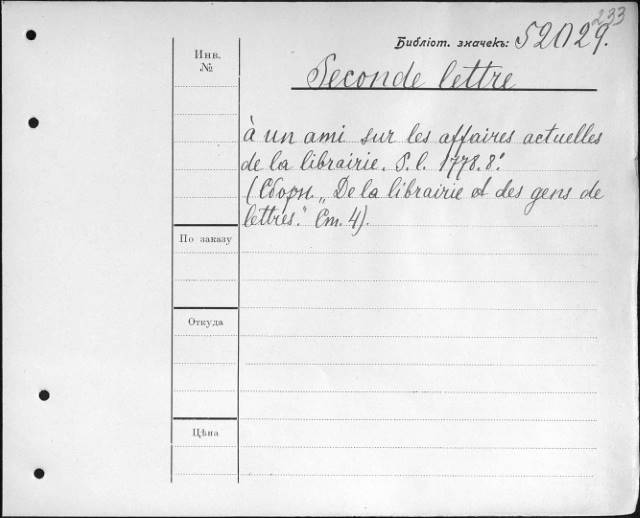 233
Библіот. значекъ: 52029.
Инв.
№
Seconde lettre
à un ami sur les affaires actuelles
de la librairie. S. l. 1778. 8º.
(Сборн. „De la librairie et des gens de
lettres." Ст. 4).
По заказу
Откуда
Цѣна